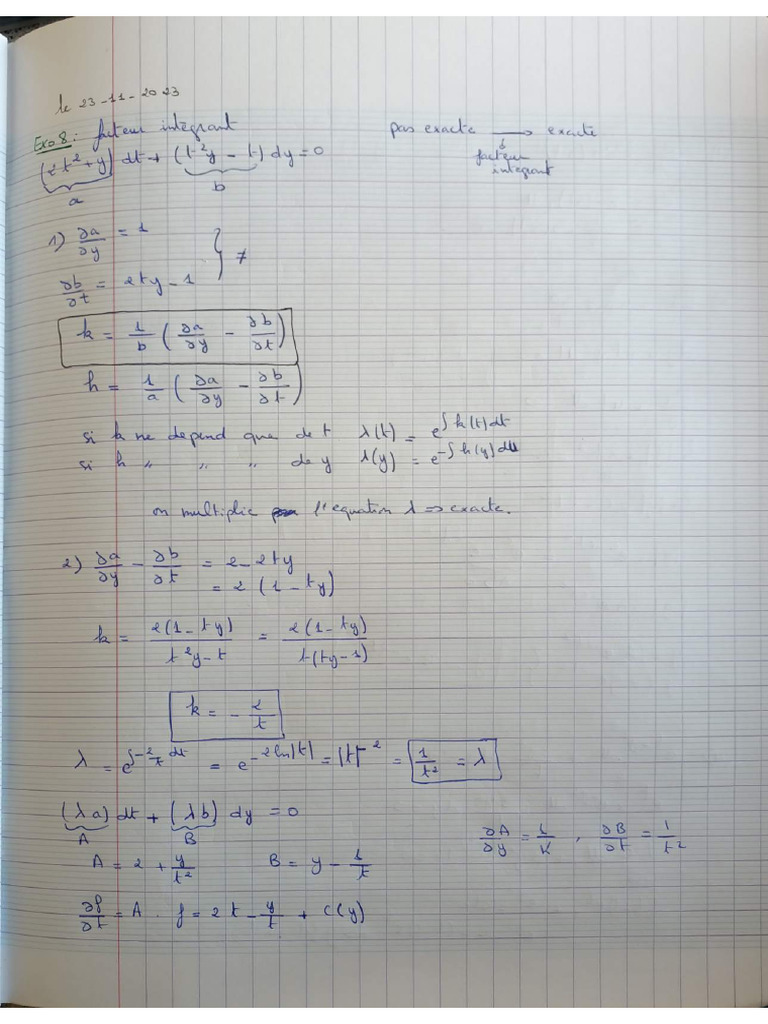 le 23-11-2023
Exo 8: facteur intégrant
pas exacte ⟶ exacte
facteur
intégrant
(2t²+y) dt + (t²y - t) dy = 0
a
b
1) ∂a/∂y = 1
≠
∂b/∂t = 2ty - 1
k = 1/b (∂a/∂y - ∂b/∂t)
h = 1/a (∂a/∂y - ∂b/∂t)
si k ne depend que de t λ(t) = e^∫k(t)dt
si h " " " de y λ(y) = e^-∫h(y)dy
on multiplie l'equation λ ⇒ exacte.
2) ∂a/∂y - ∂b/∂t = 2 - 2ty
= 2 (1 - ty)
k = 2(1 - ty)/(t²y - t) = 2(1 - ty)/(t(ty - 1))
k = - 2/t
λ = e^∫-2/t dt = e^-2ln|t| = |t|^-2 = 1/t² = λ
(λa) dt + (λb) dy = 0
A
B
∂A/∂y = 1/t², ∂B/∂t = 1/t²
A = 2 + y/t² B = y - 1/t
∂f/∂t = A . f = 2t - y/t + C(y)